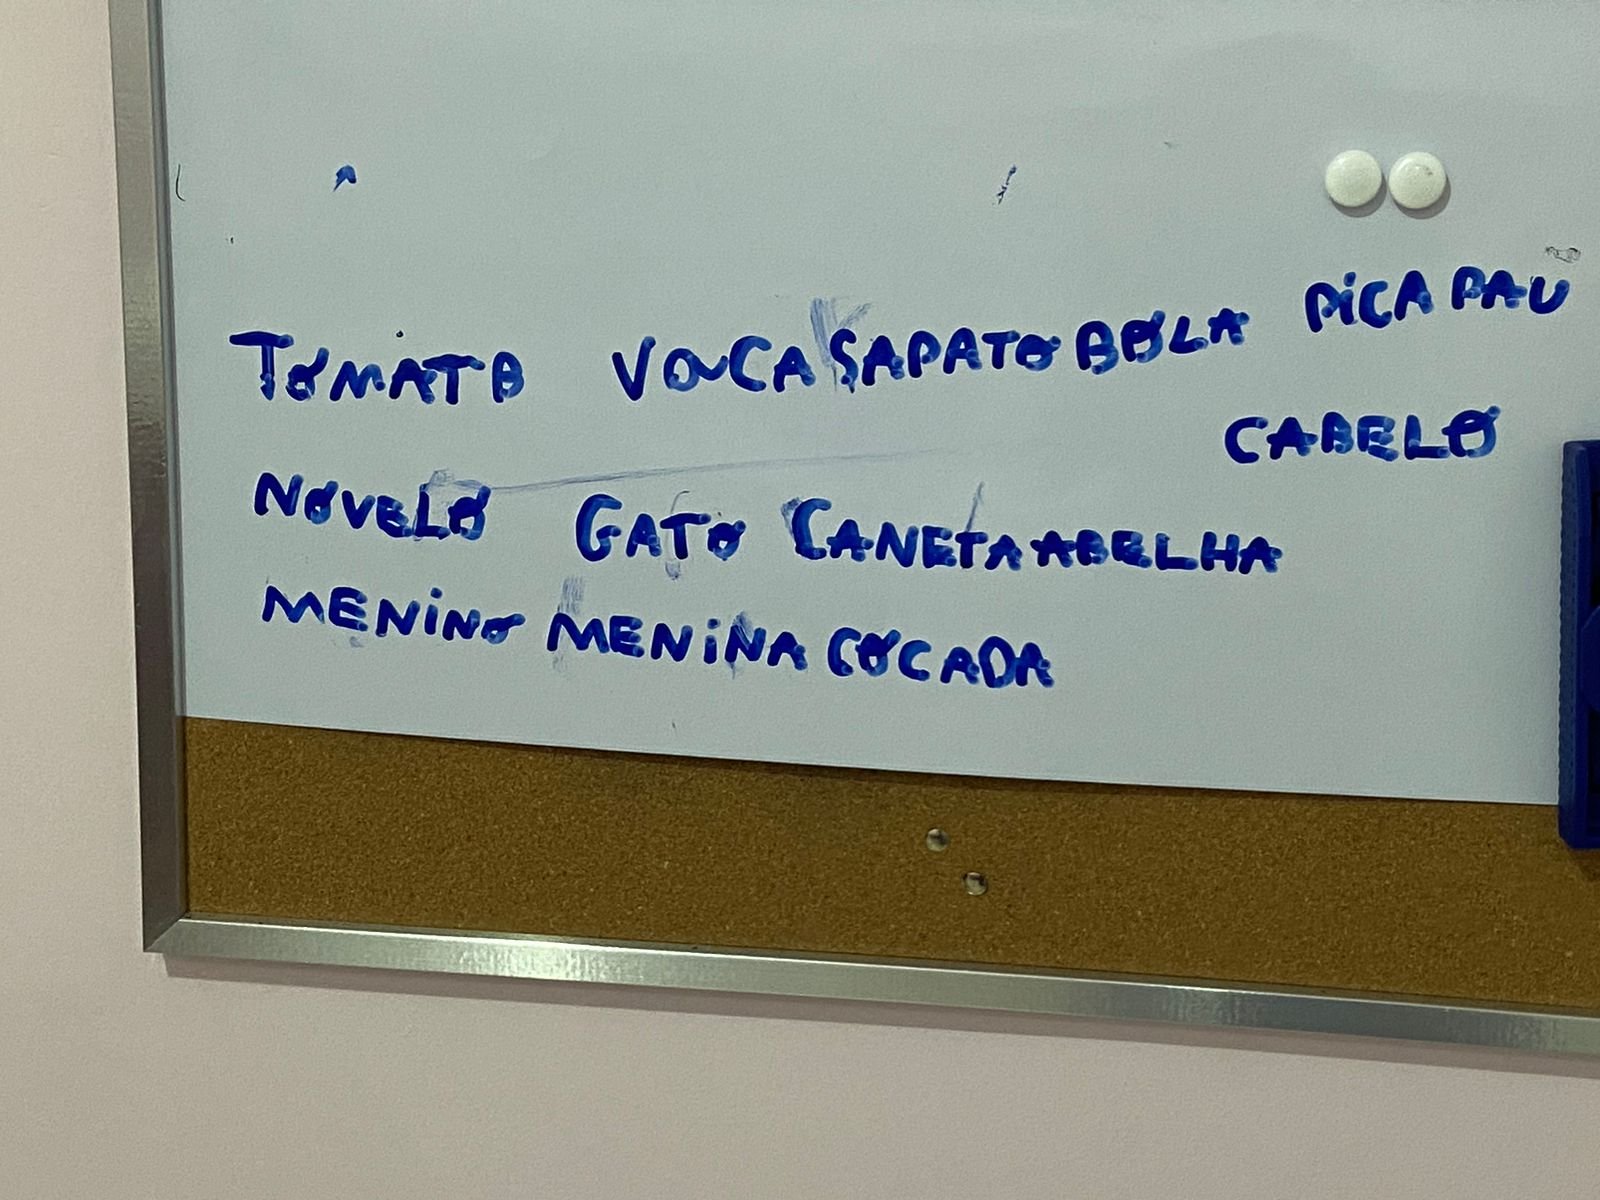 TOMATO VOVCA SAPATO BOLA PICA PAU
CABELO
NOVELO GATO CANETA ABELHA
MENINO MENINA COCADA